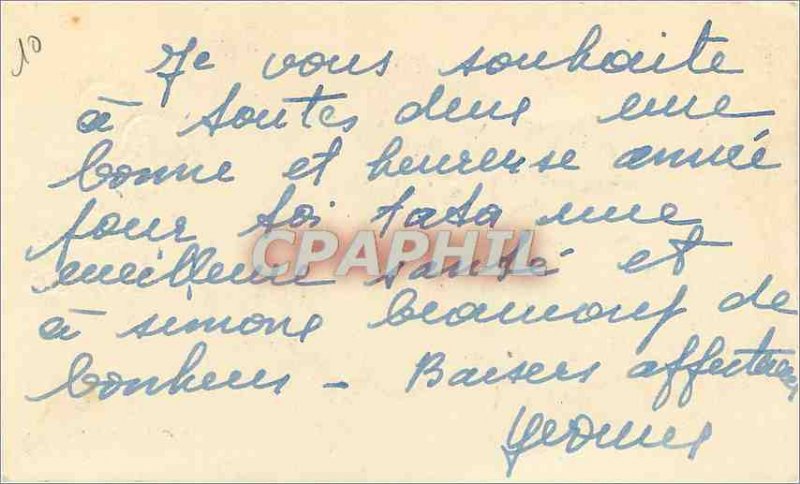 10
Je vous souhaite
à toutes deux une
bonne et heureuse année
pour toi tata une
meilleure santé et
à simone beaucoup de
bonheur - Baisers affectueux
Yvonne
CPAPHIL